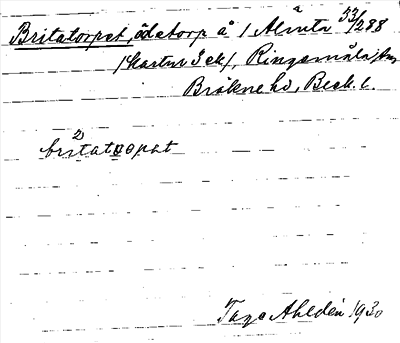 Britatorpet, ödetorp å /Almta 33/288
/kartur 3 ek/, Ringamåla sn,
Bräkne hd, Blek. l.
britatorpat
Tage Ahldén 1930